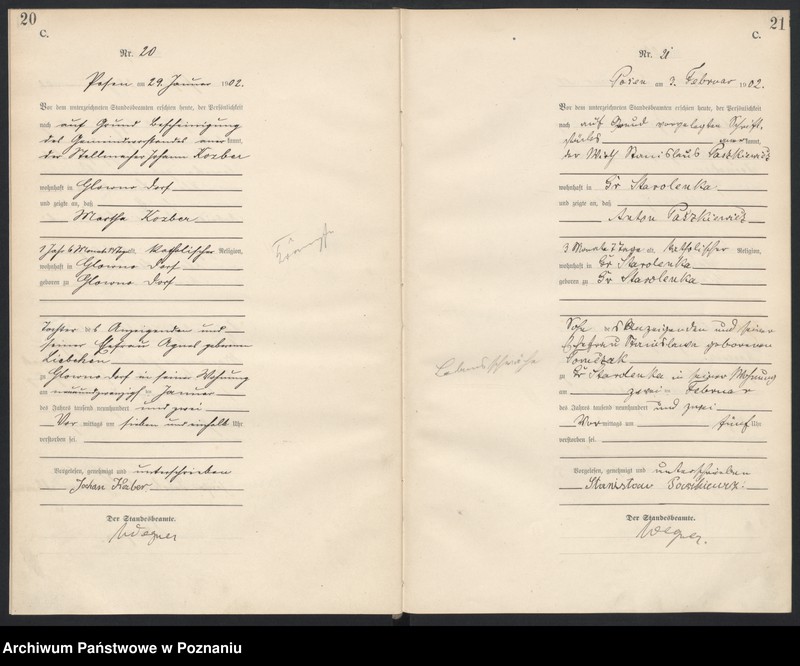 20
C.
Nr. 20
Posen am 29. Januar 1902.
Vor dem unterzeichneten Standesbeamten erschien heute, der Persönlichkeit
nach auf Grund Bescheinigung
des Gemeindevorstandes anerkannt,
der Stellmacher Johann Korber
wohnhaft in Glowno Dorf
und zeigte an, daß
Martha Korber
1 Jahr 6 Monate alt, katholischer Religion,
wohnhaft in Glowno Dorf
geboren zu Glowno Dorf
Tochter des Anzeigenden und
seiner Ehefrau Agnes geborenen
Liebchen
zu Glowno Dorf in seiner Wohnung
am neunundzwanzigsten Januar
des Jahres tausend neunhundert und zwei
Vormittags um sieben und einhalb Uhr
verstorben sei.
Vorgelesen, genehmigt und unterschrieben
Johan Kaber
Der Standesbeamte.
Wegner
Krämpfe
21
C.
Nr. 21
Posen am 3. Februar 1902.
Vor dem unterzeichneten Standesbeamten erschien heute, der Persönlichkeit
nach auf Grund vorgelegten Schrift-
stücks anerkannt,
der Wirth Stanislaus Paszkiewicz
wohnhaft in Gr Starolenka
und zeigte an, daß
Anton Paszkiewicz
3 Monate 7 Tage alt, katholischer Religion,
wohnhaft in Gr Starolenka
geboren zu Gr Starolenka
Sohn des Anzeigenden und seiner
Ehefrau Stanislawa geborenen
Tomczak
zu Gr Starolenka in seiner Wohnung
am zwei Februar
des Jahres tausend neunhundert und zwei
Vormittags um fünf Uhr
verstorben sei.
Vorgelesen, genehmigt und unterschrieben
Stanisław Paszkiewicz
Der Standesbeamte.
Wegner.
Lebensschwäche
Archiwum Państwowe w Poznaniu